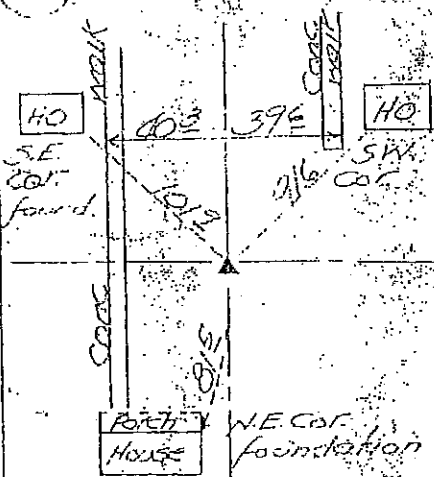 CONC WALK
CONC WALK
HO
HO
60 3
39 6
S.E.
Cor.
found.
S.W.
Cor
101 9
91 6
81 5
Porch
House
N.E. Cor.
foundation